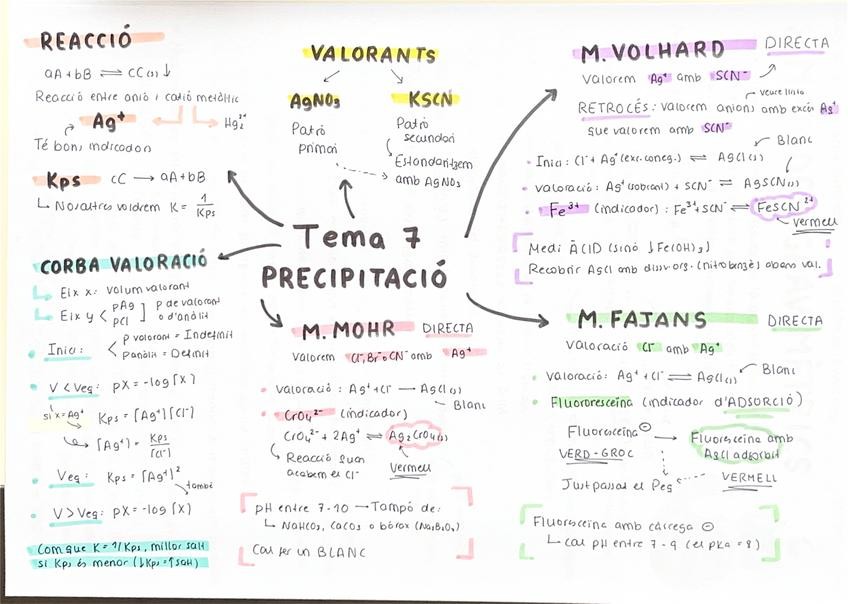 REACCIÓ
aA + bB ⇌ CC(s) ↓
Reacció entre anió i catió metàl·lic
Ag⁺
Hg₂²⁺
Té bons indicadors
Kps cC → aA + bB
↳ Nosaltres voldrem K = 1/Kps
VALORANTS
AgNO₃
KSCN
Patró
primari
Patró
secundari
Estandaritzem
amb AgNO₃
M. VOLHARD DIRECTA
Valorem Ag⁺ amb SCN⁻
veure línia
RETROCÉS: valorem anions amb excés Ag⁺
que valorem amb SCN⁻
Blanc
• Inici: Cl⁻ + Ag⁺ (exc. coneg.) ⇌ AgCl(s)
• valoració: Ag⁺ (sobrant) + SCN⁻ ⇌ AgSCN(s)
• Fe³⁺ (indicador): Fe³⁺ + SCN⁻ ⇌ FeSCN²⁺
vermell
Medi ÀCID (sinó ↓Fe(OH)₃)
Recobrir AgCl amb diss. org. (nitrobenzè) abans val.
Tema 7
PRECIPITACIÓ
CORBA VALORACIÓ
Eix x: volum valorant
Eix y < pAg
pCl
p de valorant
o d'anàlit
• Inici: < p valorant = Indefinit
p anàlit = Definit
• V < Veq: pX = -log[X]
si x = Ag⁺ Kps = [Ag⁺][Cl⁻]
[Ag⁺] = Kps/[Cl⁻]
• Veq: Kps = [Ag⁺]²
també
• V > Veq: pX = -log[X]
Com que K = 1/Kps, millor salt
si Kps és menor (↓Kps = ↑salt)
M. MOHR DIRECTA
Valorem Cl⁻, Br⁻ o CN⁻ amb Ag⁺
• valoració: Ag⁺ + Cl⁻ → AgCl(s)
Blanc
• CrO₄²⁻ (indicador)
CrO₄²⁻ + 2Ag⁺ ⇌ Ag₂CrO₄(s)
Reacció quan
acabem el Cl⁻
Vermell
pH entre 7-10 → Tampó de:
↳ NaHCO₃, CaCO₃ o bòrax (Na₂B₄O₇)
Cal fer un BLANC
M. FAJANS DIRECTA
Valoració Cl⁻ amb Ag⁺
• valoració: Ag⁺ + Cl⁻ ⇌ AgCl(s)
Blanc
• Fluororesceïna (indicador d'ADSORCIÓ)
Fluoresceïna ⊖ → Fluoresceïna amb
AgCl adsorbit
VERD-GROC
VERMELL
Just passat el Peq
Fluoresceïna amb càrrega ⊖
↳ cal pH entre 7-9 (el pKa = 8)